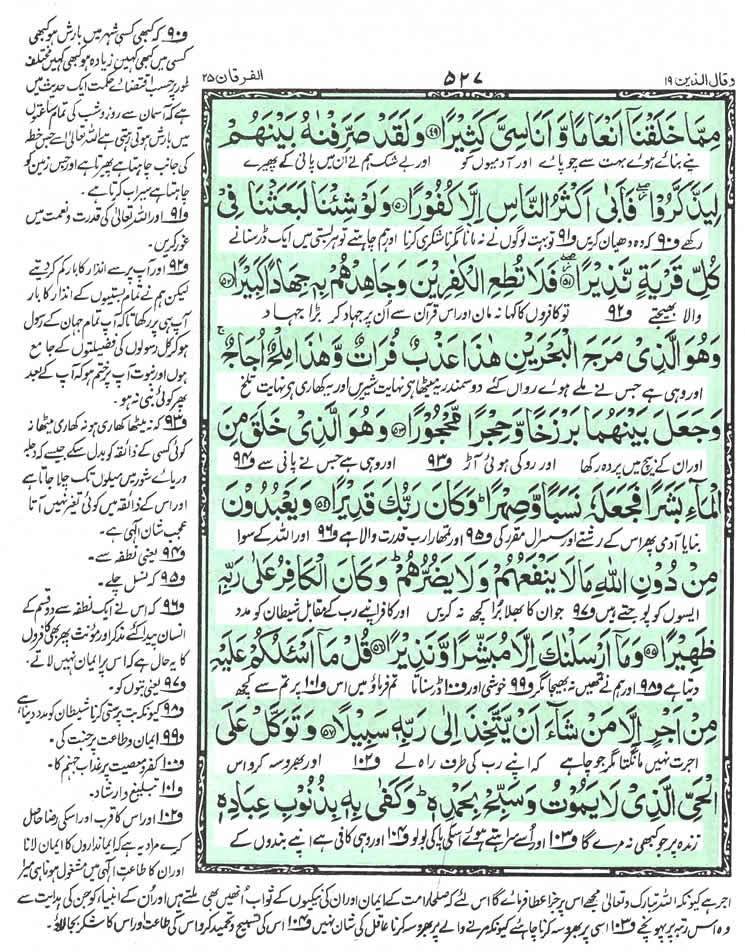 وقال الذین ۱۹
۵۲۷
الفرقان ۲۵
مِمَّا خَلَقْنَاۤ اَنْعَامًا وَّ اَنَاسِیَّ كَثِیْرًا ﴿۴۹﴾ وَ لَقَدْ صَرَّفْنٰهُ بَیْنَهُمْ
اپنے بنائے ہوئے بہت سے چوپائے اور آدمیوں کو اور بے شک ہم نے ان میں پانی کے پھیرے
لِیَذَّكَّرُوْا ۖ٘ فَاَبٰۤی اَكْثَرُ النَّاسِ اِلَّا كُفُوْرًا ﴿۵۰﴾ وَ لَوْ شِئْنَا لَبَعَثْنَا فِیْ
رکھے ف۹۰ کہ وہ دھیان کریں ف۹۱ تو بہت لوگوں نے نہ مانا مگر ناشکری کرنا اور ہم چاہتے تو ہر بستی میں ایک ڈر سنانے
كُلِّ قَرْیَةٍ نَّذِیْرًا ﴿۵۱﴾ فَلَا تُطِعِ الْكٰفِرِیْنَ وَ جَاهِدْهُمْ بِهٖ جِهَادًا كَبِیْرًا ﴿۵۲﴾
والا بھیجتے ف۹۲ تو کافروں کا کہا نہ مان اور اس قرآن سے ان پر جہاد کر بڑا جہاد
وَ هُوَ الَّذِیْ مَرَجَ الْبَحْرَیْنِ هٰذَا عَذْبٌ فُرَاتٌ وَّ هٰذَا مِلْحٌ اُجَاجٌ ۚ
اور وہی ہے جس نے ملے ہوئے رواں کئے دو سمندر یہ میٹھا ہے نہایت شیریں اور یہ کھاری ہے نہایت تلخ
وَ جَعَلَ بَیْنَهُمَا بَرْزَخًا وَّ حِجْرًا مَّحْجُوْرًا ﴿۵۳﴾ وَ هُوَ الَّذِیْ خَلَقَ مِنَ
اور ان کے بیچ میں پردہ رکھا اور روکی ہوئی آڑ ف۹۳ اور وہی ہے جس نے پانی سے ف۹۴
الْمَآءِ بَشَرًا فَجَعَلَهٗ نَسَبًا وَّ صِهْرًا ؕ وَ كَانَ رَبُّكَ قَدِیْرًا ﴿۵۴﴾ وَ یَعْبُدُوْنَ
بنایا آدمی پھر اس کے رشتے اور سسرال مقرر کی ف۹۵ اور تمھارا رب قدرت والا ہے ف۹۶ اور اللہ کے سوا
مِنْ دُوْنِ اللّٰهِ مَا لَا یَنْفَعُهُمْ وَ لَا یَضُرُّهُمْ ؕ وَ كَانَ الْكَافِرُ عَلٰی رَبِّهٖ
ایسوں کو پوجتے ہیں ف۹۷ جو ان کا بھلا برا کچھ نہ کریں اور کافر اپنے رب کے مقابل شیطان کو مدد
ظَهِیْرًا ﴿۵۵﴾ وَ مَاۤ اَرْسَلْنٰكَ اِلَّا مُبَشِّرًا وَّ نَذِیْرًا ﴿۵۶﴾ قُلْ مَاۤ اَسْـَٔلُكُمْ عَلَیْهِ
دیتا ہے ف۹۸ اور ہم نے تمھیں نہ بھیجا مگر ف۹۹ خوشی اور ف۱۰۰ ڈر سناتا تم فرماؤ میں اس ف۱۰۱ پر تم سے کچھ
مِنْ اَجْرٍ اِلَّا مَنْ شَآءَ اَنْ یَّتَّخِذَ اِلٰی رَبِّهٖ سَبِیْلًا ﴿۵۷﴾ وَ تَوَكَّلْ عَلَی
اجرت نہیں مانگتا مگر جو چاہے کہ اپنے رب کی طرف راہ لے ف۱۰۲ اور بھروسہ کرو اس
الْحَیِّ الَّذِیْ لَا یَمُوْتُ وَ سَبِّحْ بِحَمْدِهٖ ؕ وَ كَفٰی بِهٖ بِذُنُوْبِ عِبَادِهٖ
زندہ پر جو کبھی نہ مرے گا ف۱۰۳ اور اسے سراہتے ہوئے اسکی پاکی بولو ف۱۰۴ اور وہی کافی ہے اپنے بندوں کے
ف۹۰ کہ کبھی کسی شہر میں بارش ہو کبھی
کسی میں کبھی کہیں زیادہ ہو کبھی کہیں مختلف
طور پر حسب اقتضائے حکمت ایک حدیث میں
ہے کہ آسمان سے روز و شب کی تمام ساعتوں
میں بارش ہوتی رہتی ہے اللہ تعالیٰ اسے جس خطہ
کی جانب چاہتا ہے پھیرتا ہے اور جس زمین کو
چاہتا ہے سیراب کرتا ہے۔
ف۹۱ اور اللہ تعالیٰ کی قدرت و نعمت میں
غور کریں۔
ف۹۲ اور آپ پر سے انذار کا بار کم کر دیتے
لیکن ہم نے تمام بستیوں کے انذار کا بار
آپ ہی پر رکھا تاکہ آپ تمام جہان کے رسول
ہو کر کل رسولوں کی فضیلتوں کے جامع
ہوں اور نبوت آپ پر ختم ہو کہ آپ کے بعد
پھر کوئی نبی نہ ہو۔
ف۹۳ کہ نہ میٹھا کھاری ہو نہ کھاری میٹھا نہ
کوئی کسی کے ذائقہ کو بدل سکے جیسے کہ دجلہ
دریائے شور میں میلوں تک چلا جاتا ہے
اور اس کے ذائقہ میں کوئی تغیر نہیں آتا
عجب شان الٰہی ہے۔
ف۹۴ یعنی نطفہ سے۔
ف۹۵ کہ نسل چلے۔
ف۹۶ کہ اس نے ایک نطفہ سے دو قسم کے
انسان پیدا کئے مذکر اور مؤنث پھر بھی کافروں
کا یہ حال ہے کہ اس پر ایمان نہیں لاتے۔
ف۹۷ یعنی بتوں کو۔
ف۹۸ کیونکہ بت پرستی کرنا شیطان کو مدد دینا ہے
ف۹۹ ایمان و طاعت پر جنت کی۔
ف۱۰۰ کفر و معصیت پر عذاب جہنم کا۔
ف۱۰۱ تبلیغ و ارشاد۔
ف۱۰۲ اور اس کا قرب اور اسکی رضا حاصل
کرے مراد یہ ہے کہ ایمانداروں کا ایمان لانا
اور ان کا طاعت الٰہی میں مشغول ہونا ہی میرا
اجر ہے کیونکہ اللہ تبارک و تعالیٰ مجھے اس پر جزا عطا فرمائے گا اس لئے کہ صلحاء امت کے ایمان اور ان کی نیکیوں کے ثواب انھیں بھی ملتے ہیں اور ان کے انبیاء کو جن کی ہدایت سے
وہ اس رتبہ پر پہونچے ف۱۰۳ اسی پر بھروسہ کرنا چاہئے کیونکہ مرنے والے پر بھروسہ کرنا عاقل کی شان نہیں ف۱۰۴ اس کی تسبیح و تحمید کرو اس کی طاعت اور اس کا شکر بجا لاؤ۔